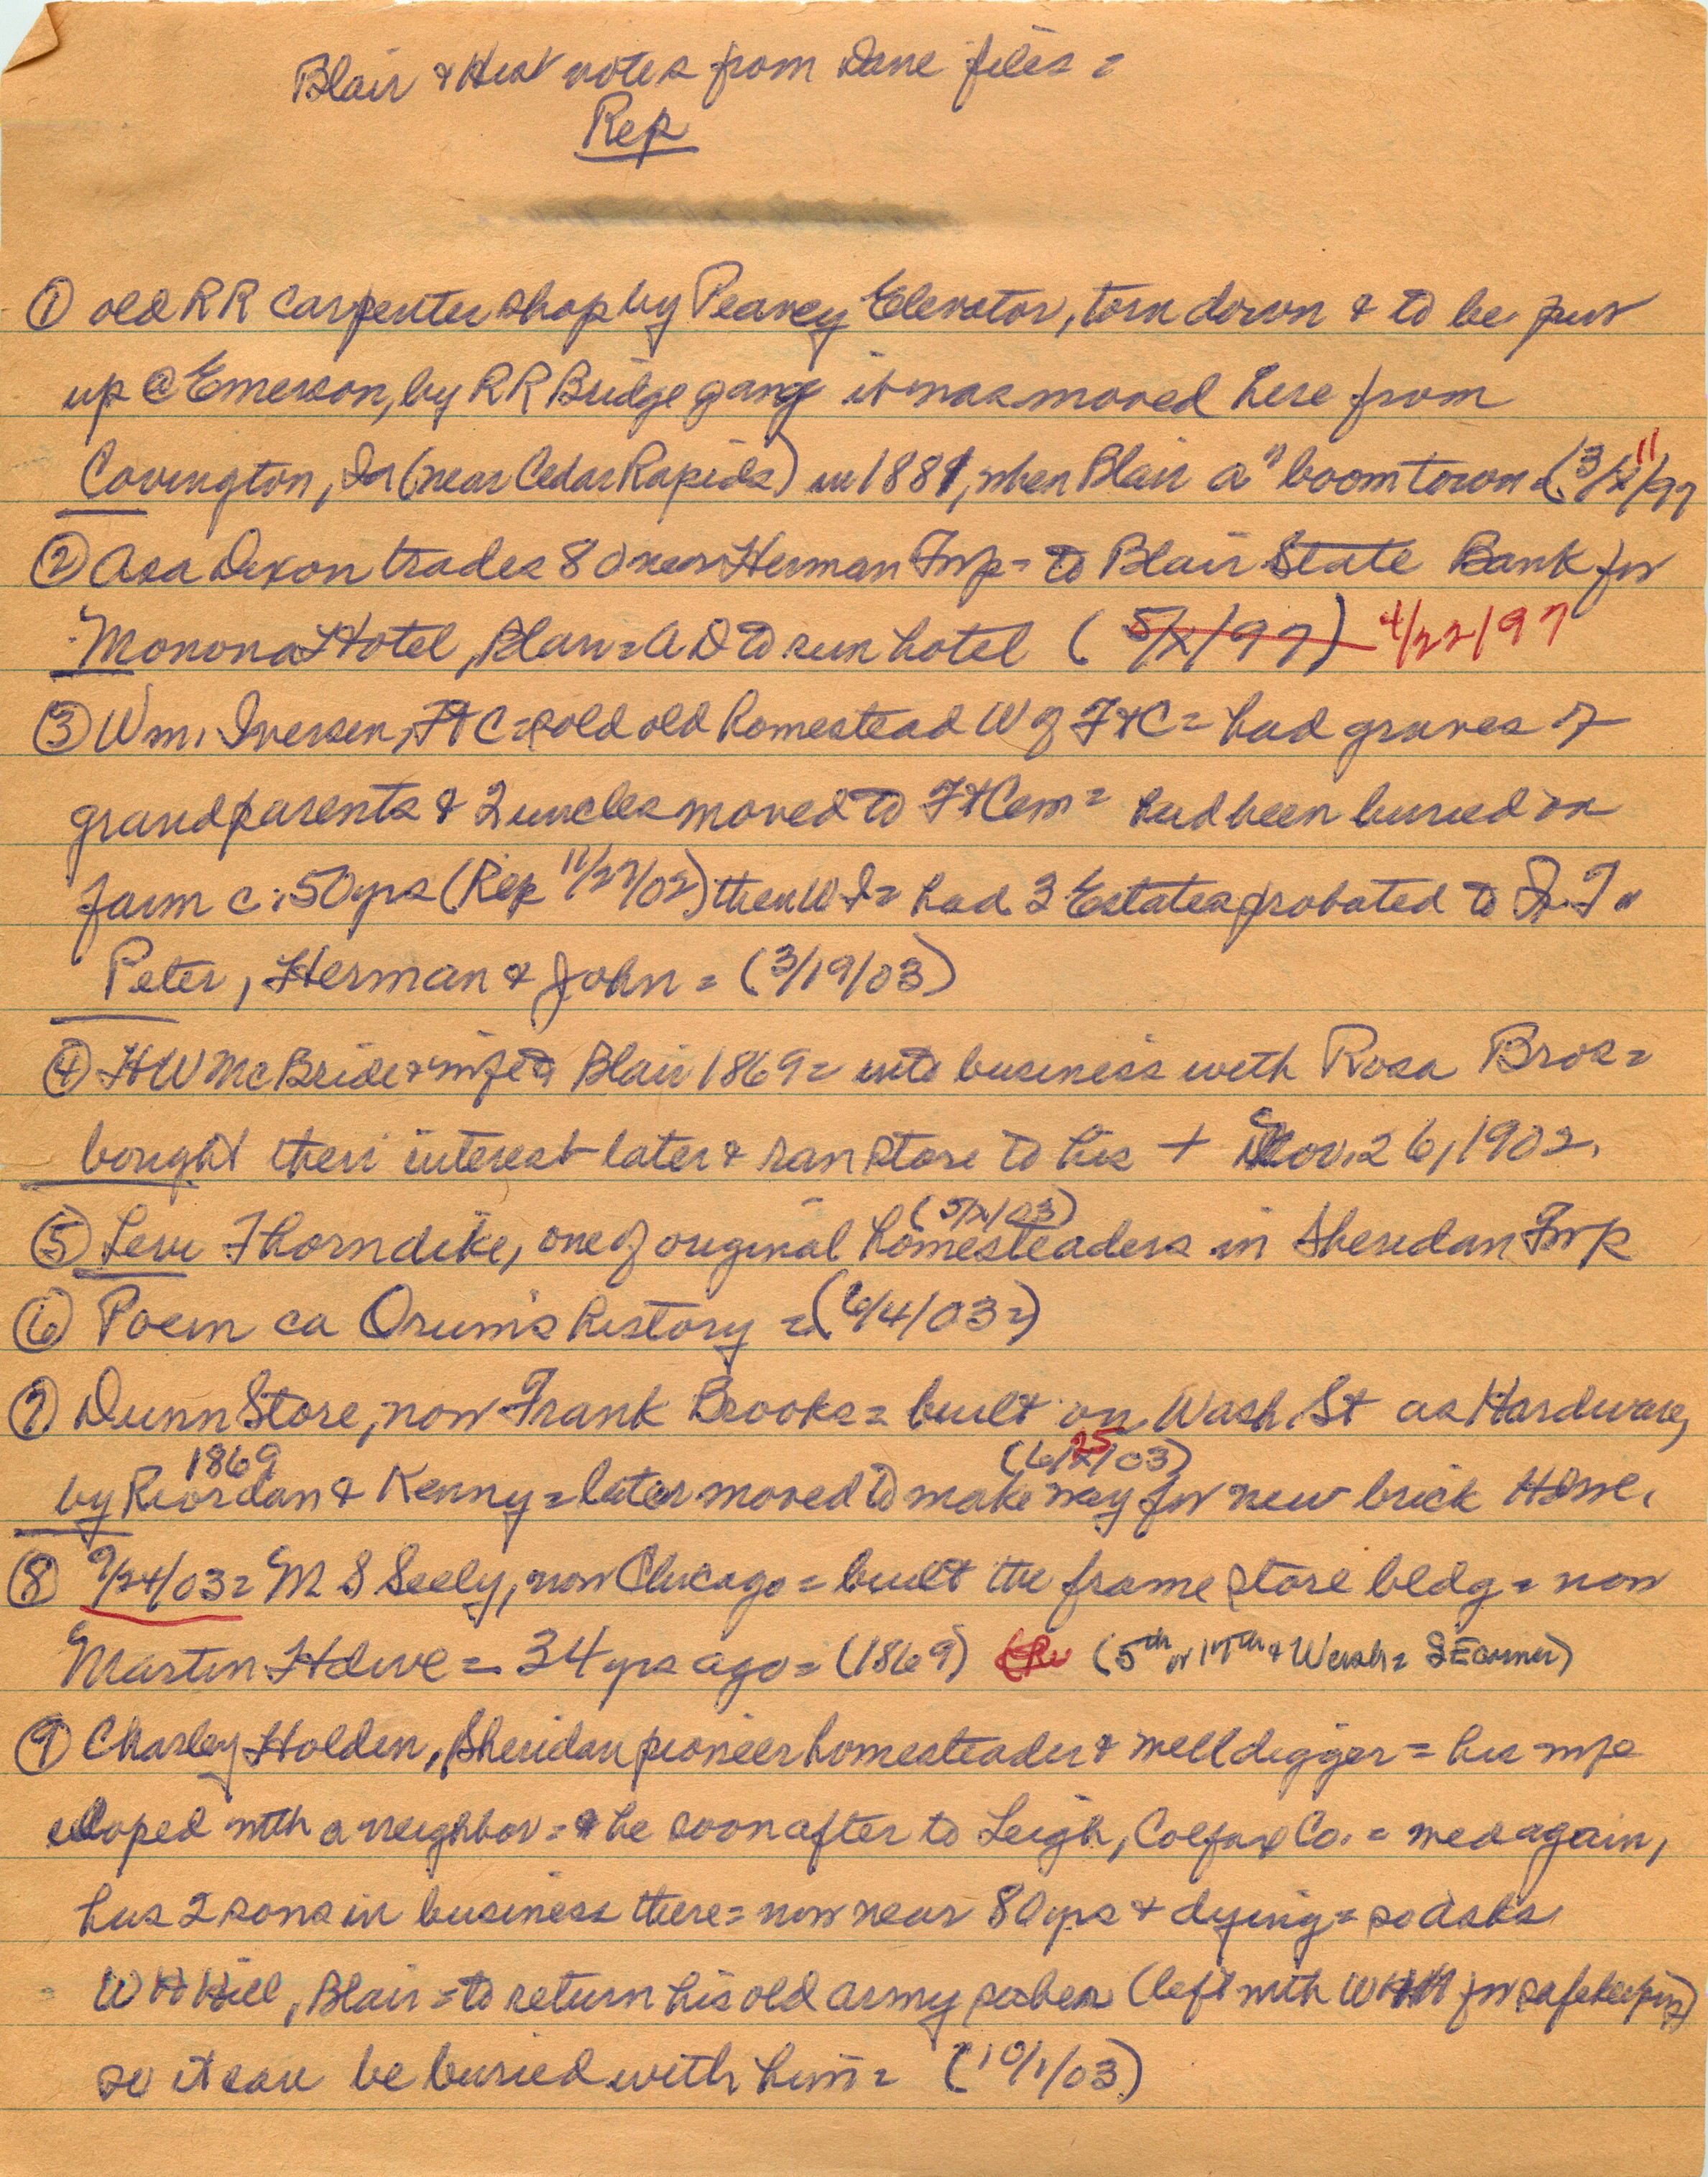 Blair & Hist notes from Dane files =
Rep
① old RR carpenter shop by Peavey Elevator, torn down & to be put
up @ Emerson, by RR Bridge gang it was moved here from
Covington, Ia (near Cedar Rapids) in 1881, when Blair a "boom town" (3/11/97
② Asa Dixon trades 80 near Herman Twp = to Blair State Bank for
Monona Hotel, Blair = A D to run hotel (5/x/97) 4/22/97
③ Wm. Iversen, Ft C = sold old homestead W of Ft C = had graves of
grandparents & 2 uncles moved to Ft Cem = had been buried on
farm c. 50 yrs (Rep 11/27/02) then W I = had 3 Estates probated to
Peter, Herman & John = (3/19/03)
④ H W McBride & wife to Blair 1869 = into business with Rosa Bros =
bought their interest later & ran store to his + Nov. 26, 1902.
(5/x/03)
⑤ Levi Thorndike, one of original homesteaders in Sheridan Twp
⑥ Poem ca Orum's history = (6/4/03 =)
⑦ Dunn Store, now Frank Brooks = built on Wash. St as Hardware,
1869 (6/25/03)
by Riordan & Kenny = later moved to make way for new brick Hdwe.
⑧ 9/24/03 = M S Seely, now Chicago = built the frame store bldg = now
Martin Hdwe = 34 yrs ago = (1869) (5th or 17th & Wash = SE corner)
⑨ Charley Holden, Sheridan pioneer homesteader & well digger = his wife
eloped with a neighbor = & he soon after to Leigh, Colfax Co. = med again,
has 2 sons in business there = now near 80 yrs & dying = so asks
W H Hill, Blair = to return his old army saber (left with WHH for safekeeping)
so it can be buried with him = (10/1/03)